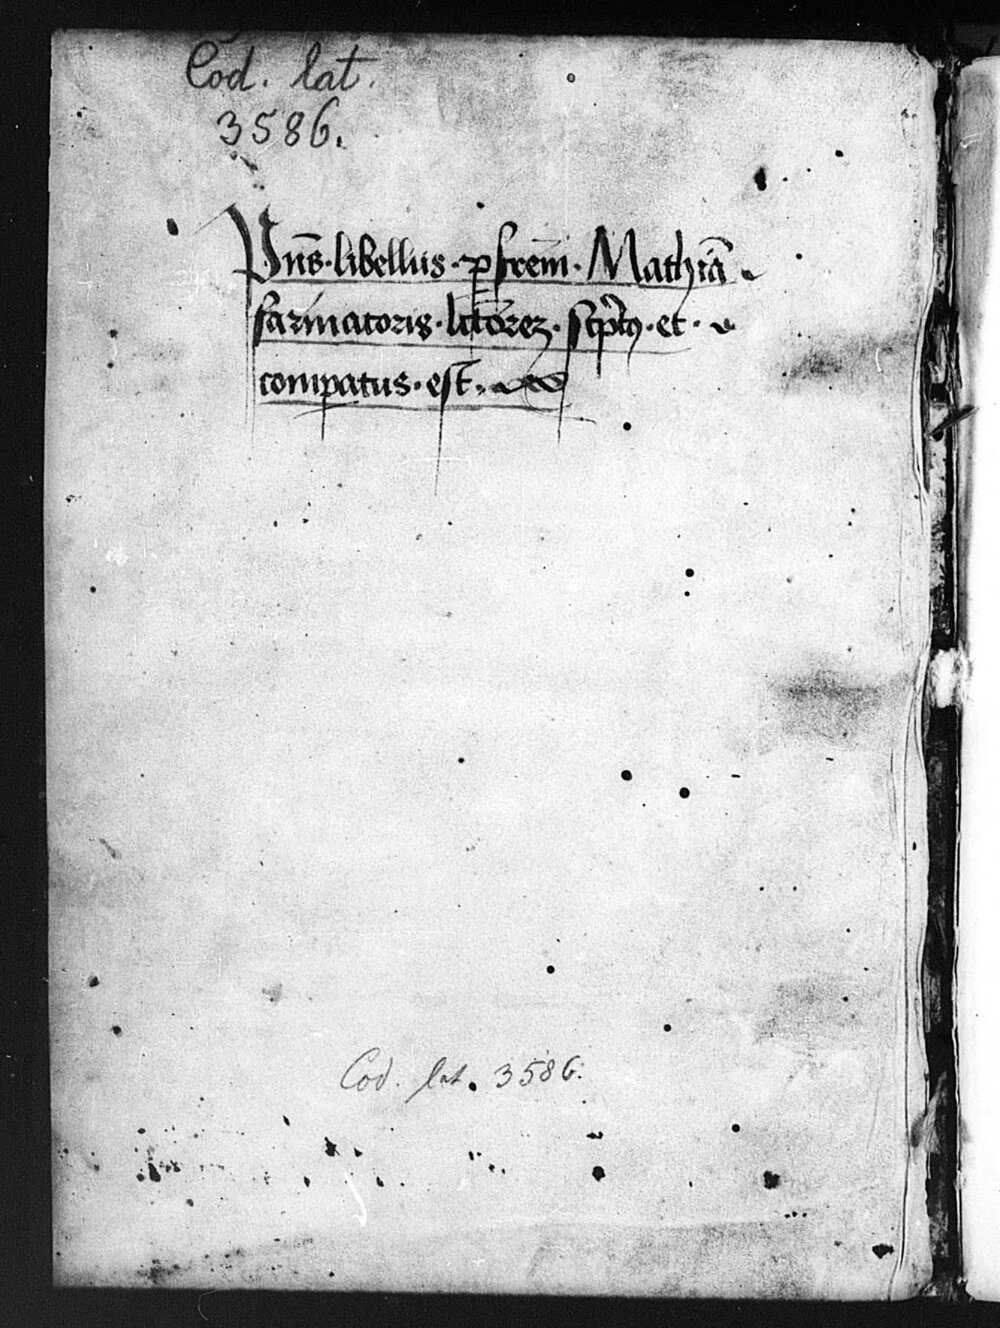 Cod. lat.
3586.
Pn̄s · libellus · ꝑ frem̄ · Mathiā
farinatoris · lc̄torez · sc̄ptꝯ · et ·
comꝑatus · est ·
Cod. lat. 3586.